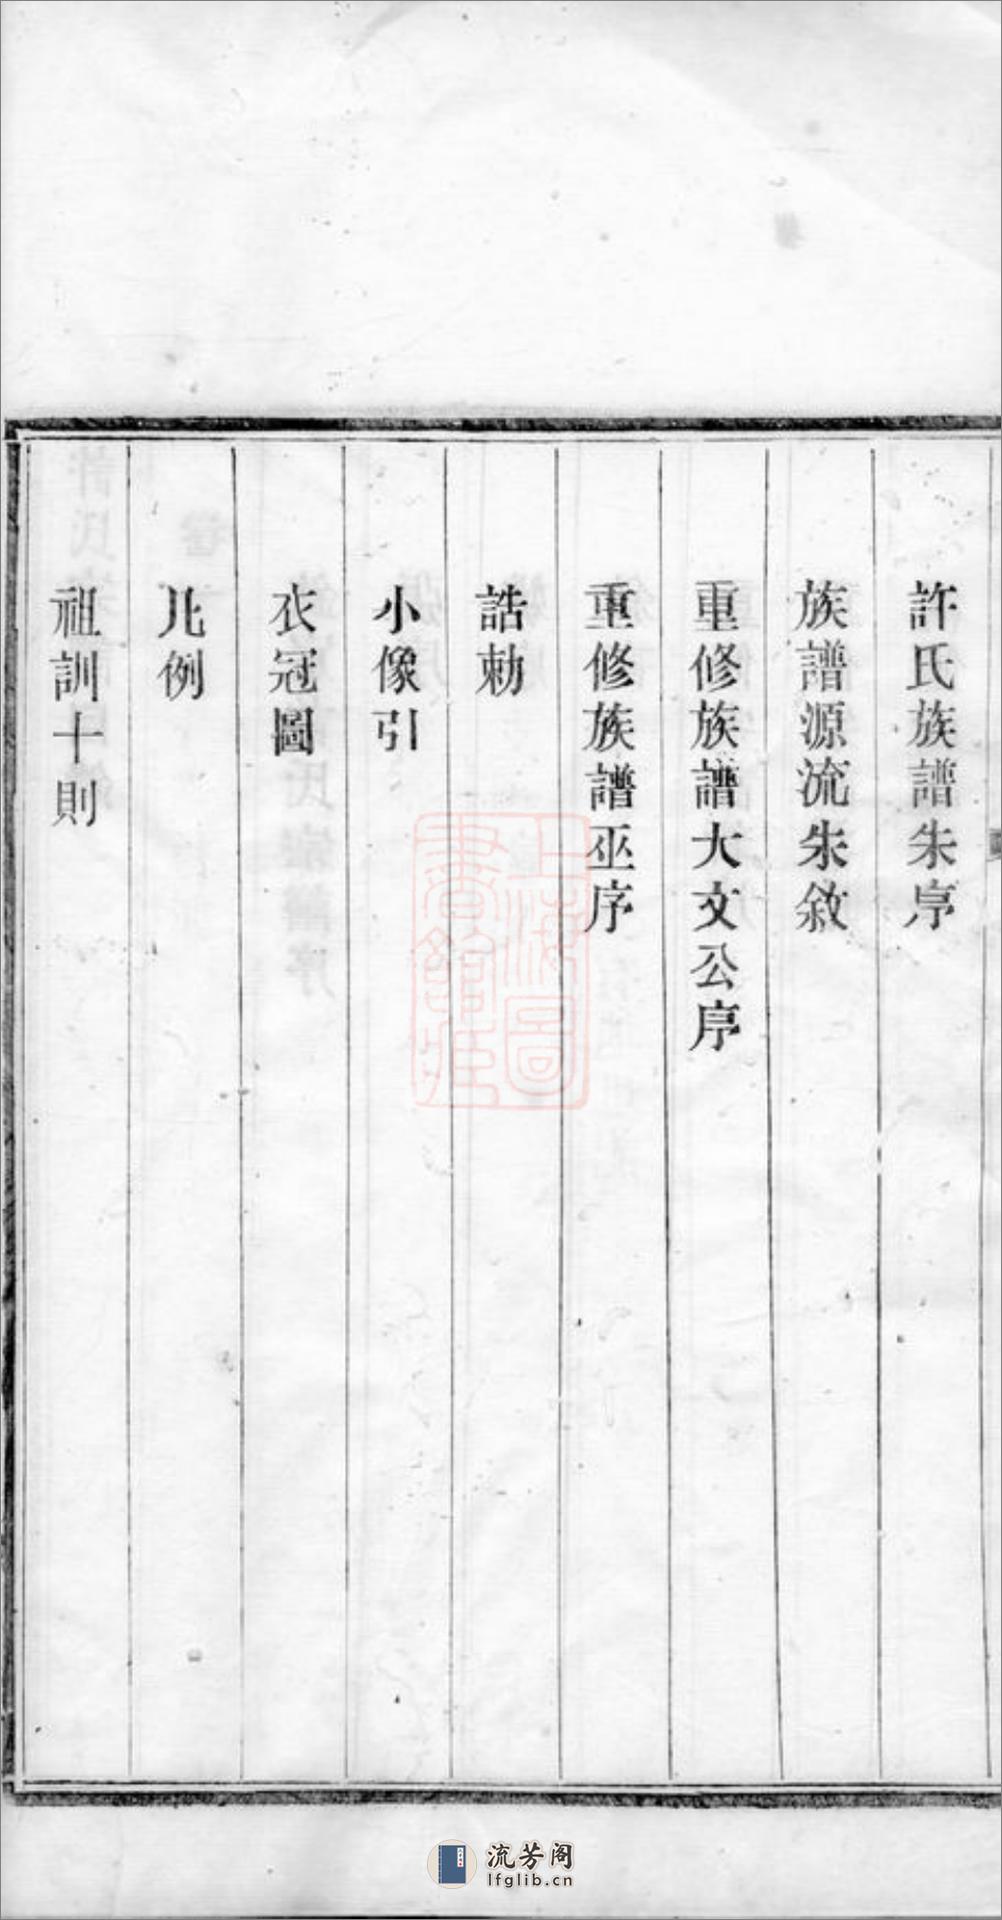 許氏族譜朱序
族譜源流朱敘
重修族譜大文公序
重修族譜巫序
誥勅
小像引
衣冠圖
凡例
祖訓十則
上海圖書館藏
流芳阁
lfglib.cn